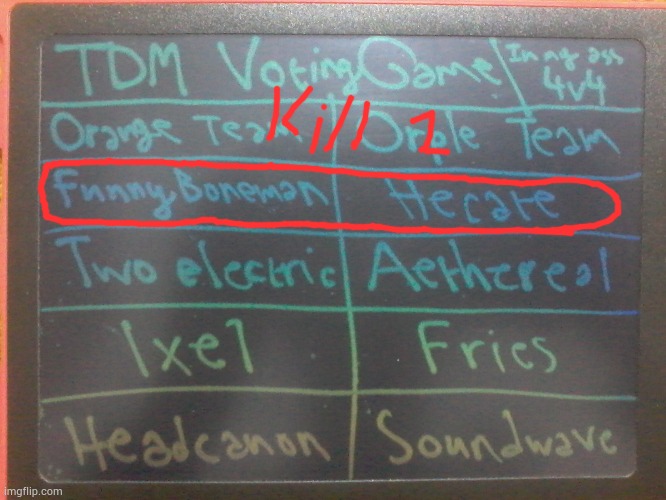 TDM Voting Game
In my ass
4v4
Kill 1
Orange Team
Orple Team
Funny Boneman
Hecate
Two electric
Aethereal
Ixel
Fries
Headcanon
Soundwave
imgflip.com